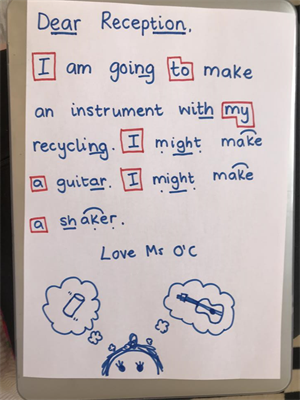 Dear Reception,
I am going to make
an instrument with my
recycling. I might make
a guitar. I might make
a shaker.
Love Ms O'C